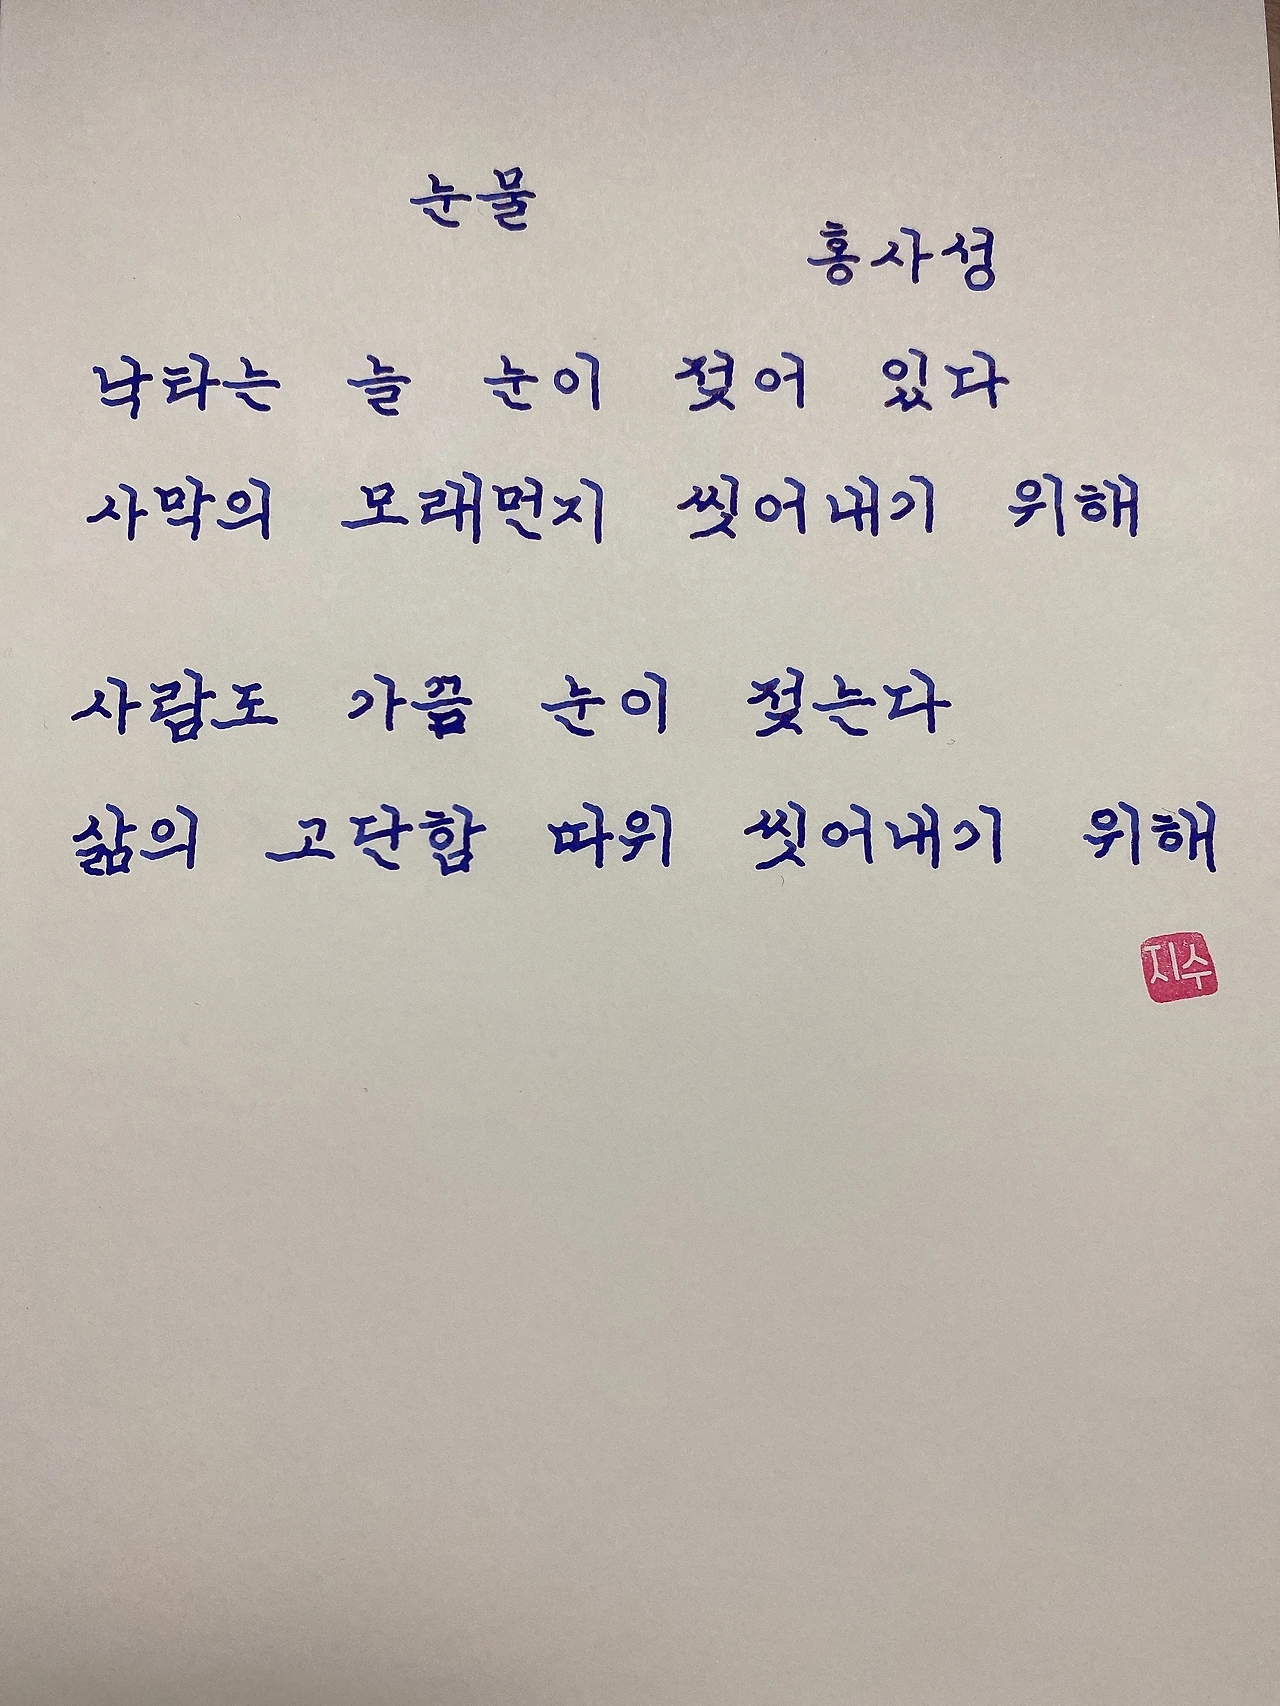 눈물
홍사성
낙타는 늘 눈이 젖어 있다
사막의 모래먼지 씻어내기 위해
사람도 가끔 눈이 젖는다
삶의 고단함 따위 씻어내기 위해
지수